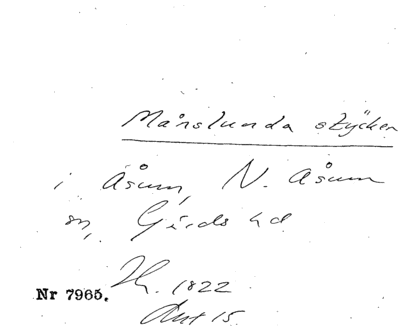 Månslunda stycken
i Åsum, N. Åsum
sn, Gärds hd
Lk. 1822
Nr 7965.
Akt 15